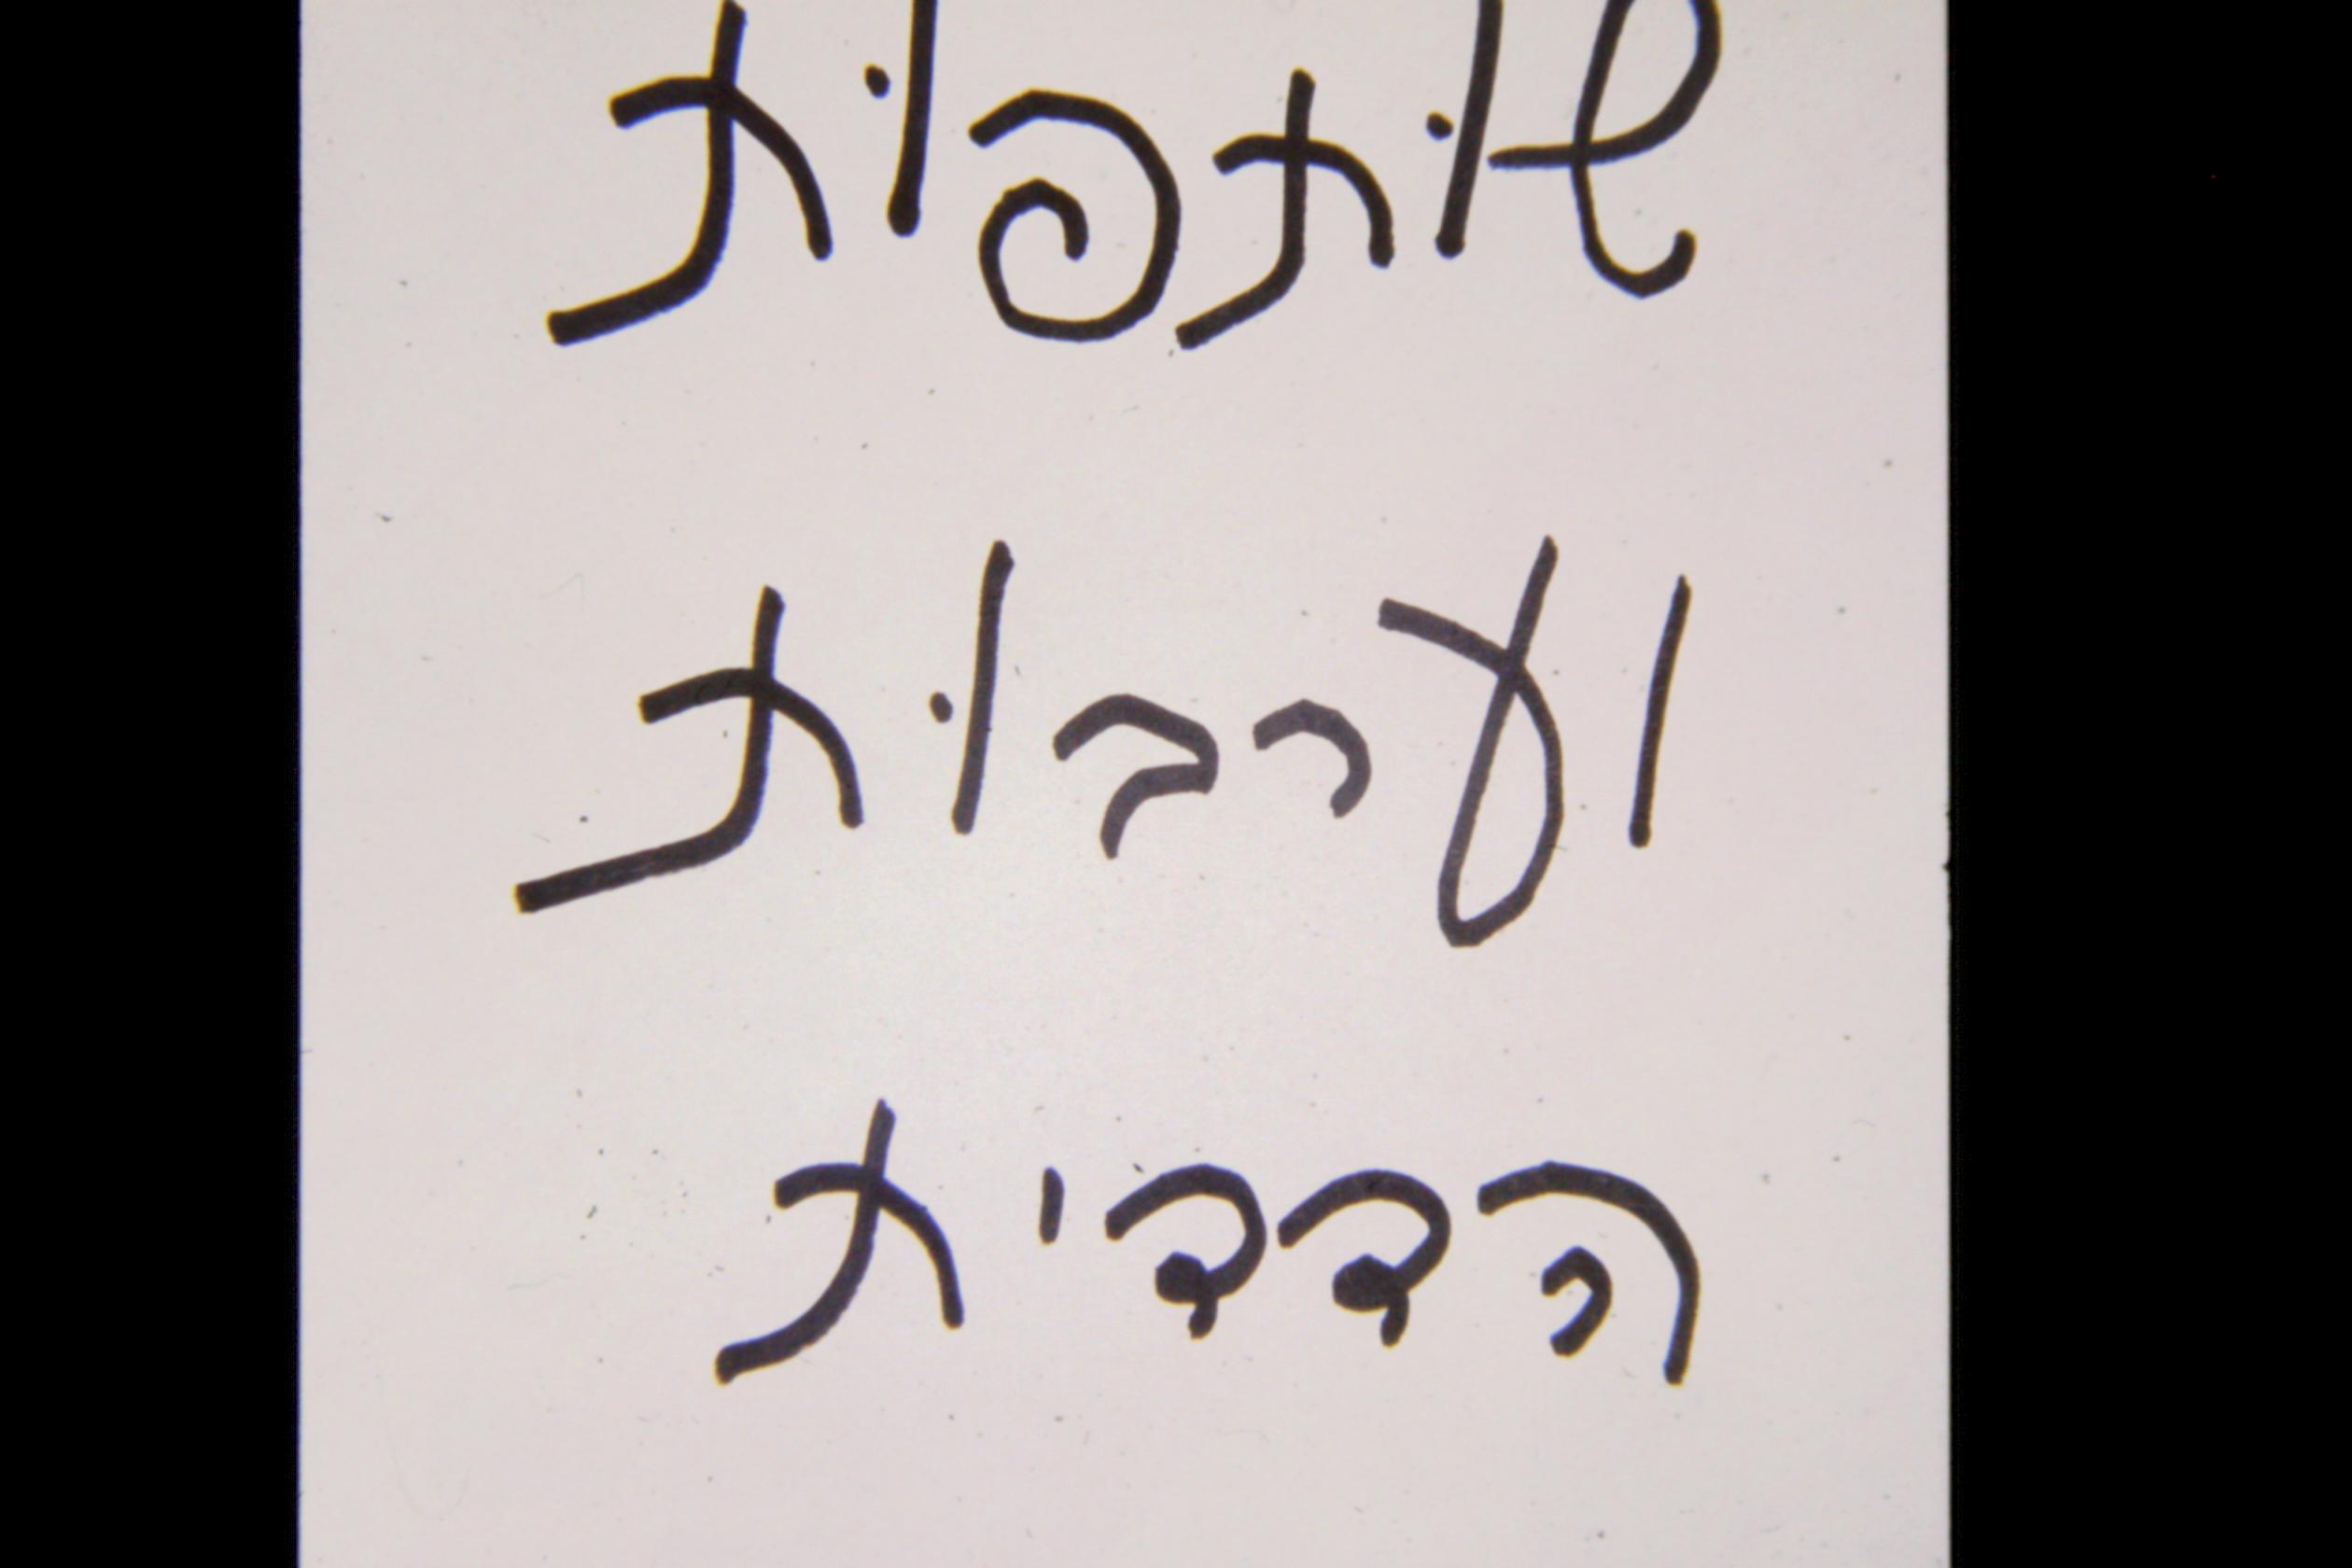 שוּתפוּת
וערבוּת
הדדית